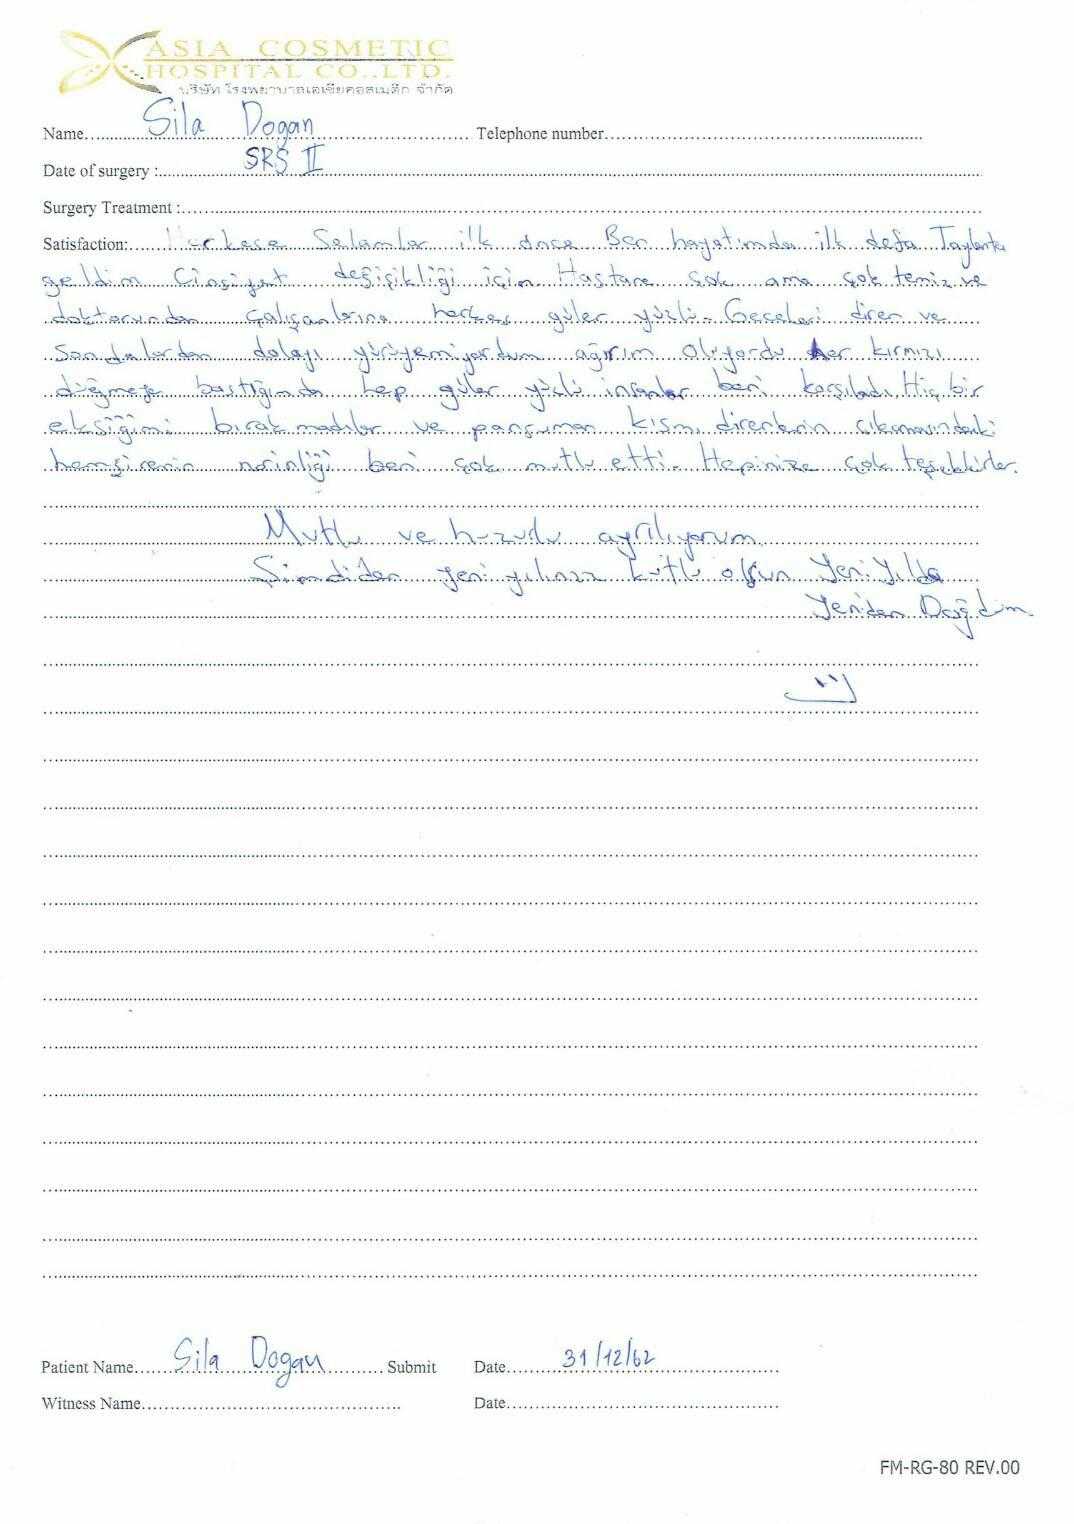 ASIA COSMETIC
HOSPITAL CO.,LTD.
บริษัท โรงพยาบาลเอเซียคอสเมติก จำกัด
Name Sila Dogan Telephone number
Date of surgery : SRS II
Surgery Treatment :
Satisfaction: Herkese Selamlar ilk önce Ben hayatımda ilk defa Taylanta
geldim Cinsiyet değişikliği için Hastane çok ama çok temiz ve
doktorundan çalışanlarına herkes güler yüzlü. Geceleri diren ve
Sondalardan dolayı yürüyemiyordum ağırım oluyordu Her kırmızı
düğmeye bastığımda hep güler yüzlü insanlar beni karşıladı Hiç bir
eksiğimi bırakmadılar ve pansuman kısmı direnlerin çıkarmasındaki
hemşirenin narinliği beni çok mutlu etti. Hepinize çok teşekkürler.
Mutlu ve huzurlu ayrılıyorum
Şimdiden yeni yılınız kutlu olsun Yeni Yılda
Yeniden Doğdum
Patient Name Sila Dogan Submit Date 31/12/62
Witness Name Date
FM-RG-80 REV.00